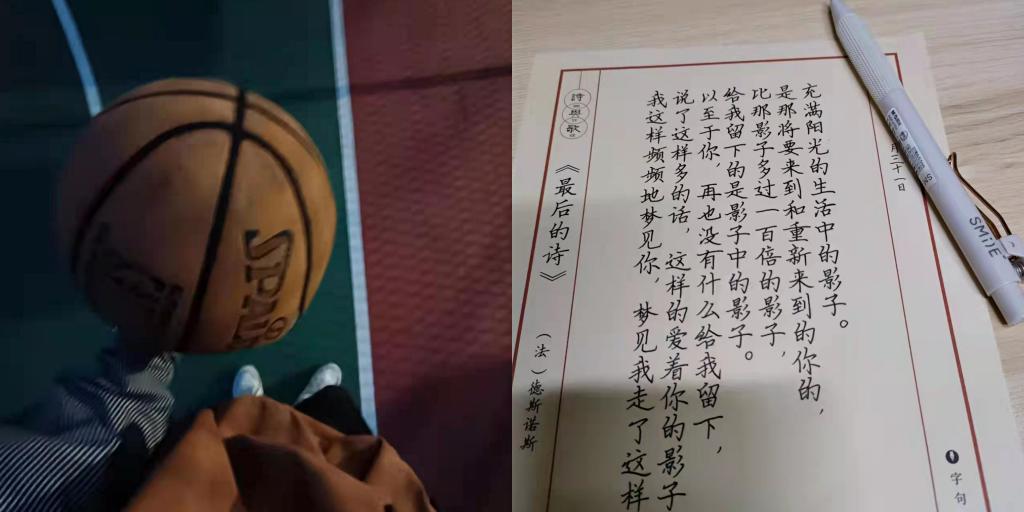 SPAL
詩
與
歌
《最后的诗》
(法)德斯诺斯
我这样频频地梦见你,梦见我走了这样
说了这样多的话,这样的爱着你的影子
以至于你,再也没有什么给我留下,
给我留下的是影子中的影子。
比那影子多过一百倍的影子,
是那将要来到和重新来到的你的,
充满阳光的生活中的影子。
字句
SMILE